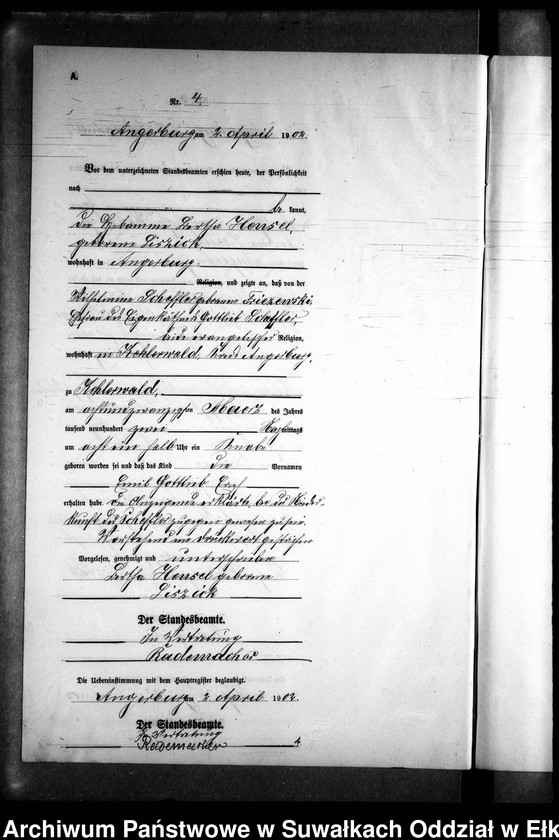 A.
Nr. 4.
Angerburg am 2 April 1902.
Vor dem unterzeichneten Standesbeamten erschien heute, der Persönlichkeit
nach
be kannt,
die Hebamme Bertha Hensel,
geborene Liszick,
wohnhaft in Angerburg.
Religion, und zeigte an, daß von der
Wilhelmine Scheffler geborene
Ehefrau des Eigenkäthners Gottlieb Scheffler,
beide evangelischer Religion,
wohnhaft in Kehlerwald, Kreis Angerburg,
zu Kehlerwald,
am achtundzwanzigsten Maerz des Jahres
tausend neunhundert zwei Nachmittags
um acht ein halb Uhr ein Knabe
geboren worden sei und daß das Kind die Vornamen
Emil Gottlieb
erhalten habe. Die Anzeigende erklärte, bei der Nieder-
kunft der Scheffler zugegen gewesen zu sein.
Vorstehend ein Druckwort gestrichen
Vorgelesen, genehmigt und unterschrieben
Bertha Hensel geborene
Liszick
Der Standesbeamte.
In Vertretung
Rademacher
Die Uebereinstimmung mit dem Hauptregister beglaubigt.
Angerburg am 2 April 1902.
Der Standesbeamte.
In Vertretung
Rademacher
4
Archiwum Państwowe w Suwałkach Oddział w Ełk